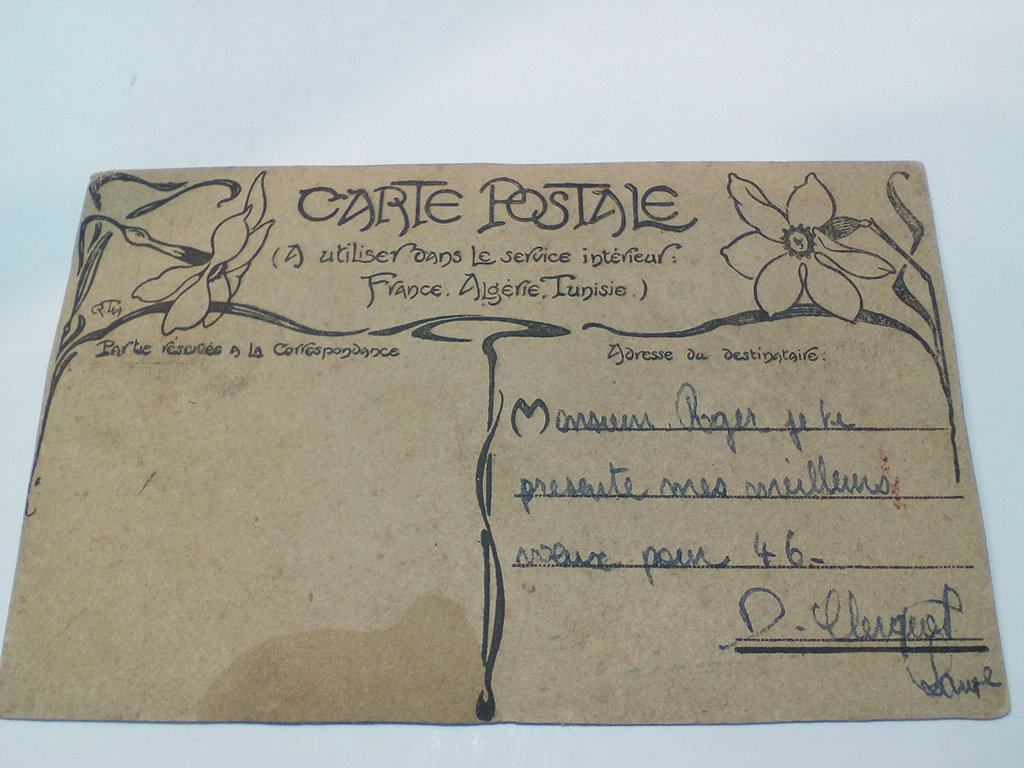 CARTE POSTALE
(A utiliser dans le service intérieur:
France. Algérie. Tunisie.)
Partie réservée a la Correspondance
Adresse du destinataire.
Monsieur Roger je te
presente mes meilleurs
voeux pour 46-
D.